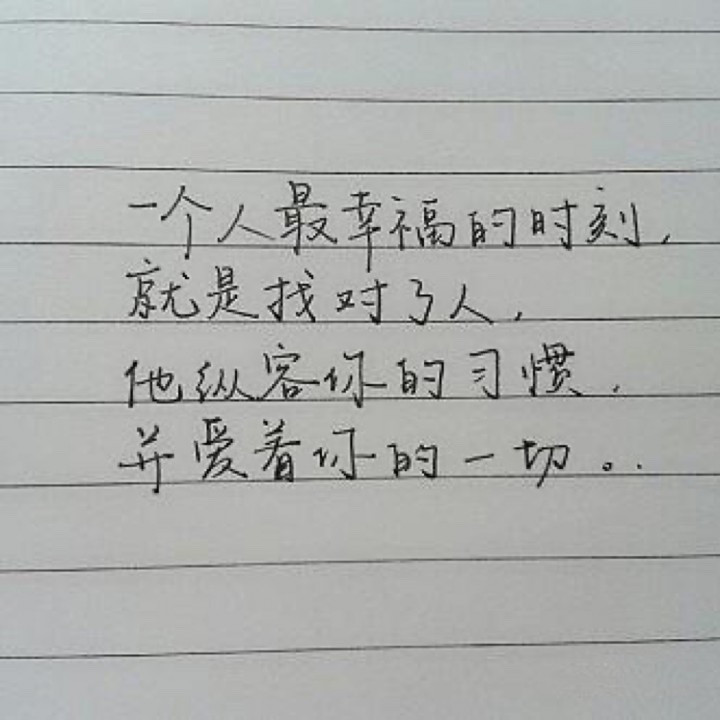 一个人最幸福的时刻,
就是找对了人,
他纵容你的习惯,
并爱着你的一切。.